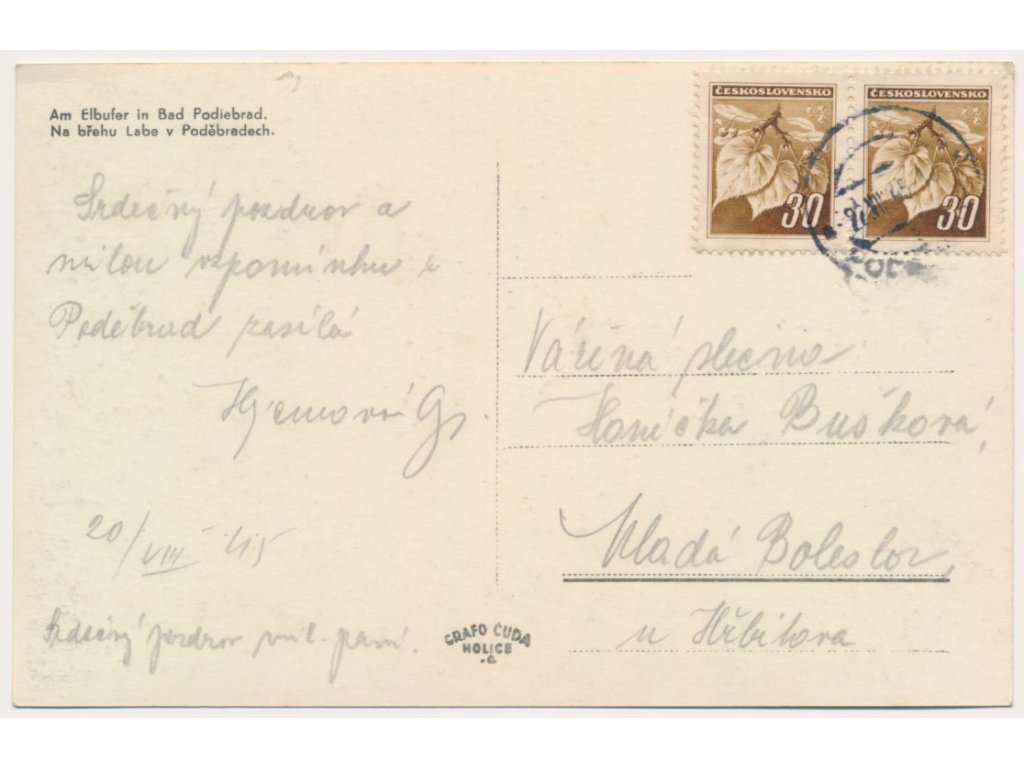 Am Elbufer in Bad Podiebrad.
Na břehu Labe v Poděbradech.
Srdečný pozdrav a
milou vzpomínku z
Poděbrad zasílá
20/VIII 45
Srdečný pozdrav mil. paní.
GRAFO ČUDA
HOLICE
ČESKOSLOVENSKO
30
ČESKOSLOVENSKO
30
Vážená slečna
Hanička Bušková,
Mladá Boleslav,
u Hřbitova